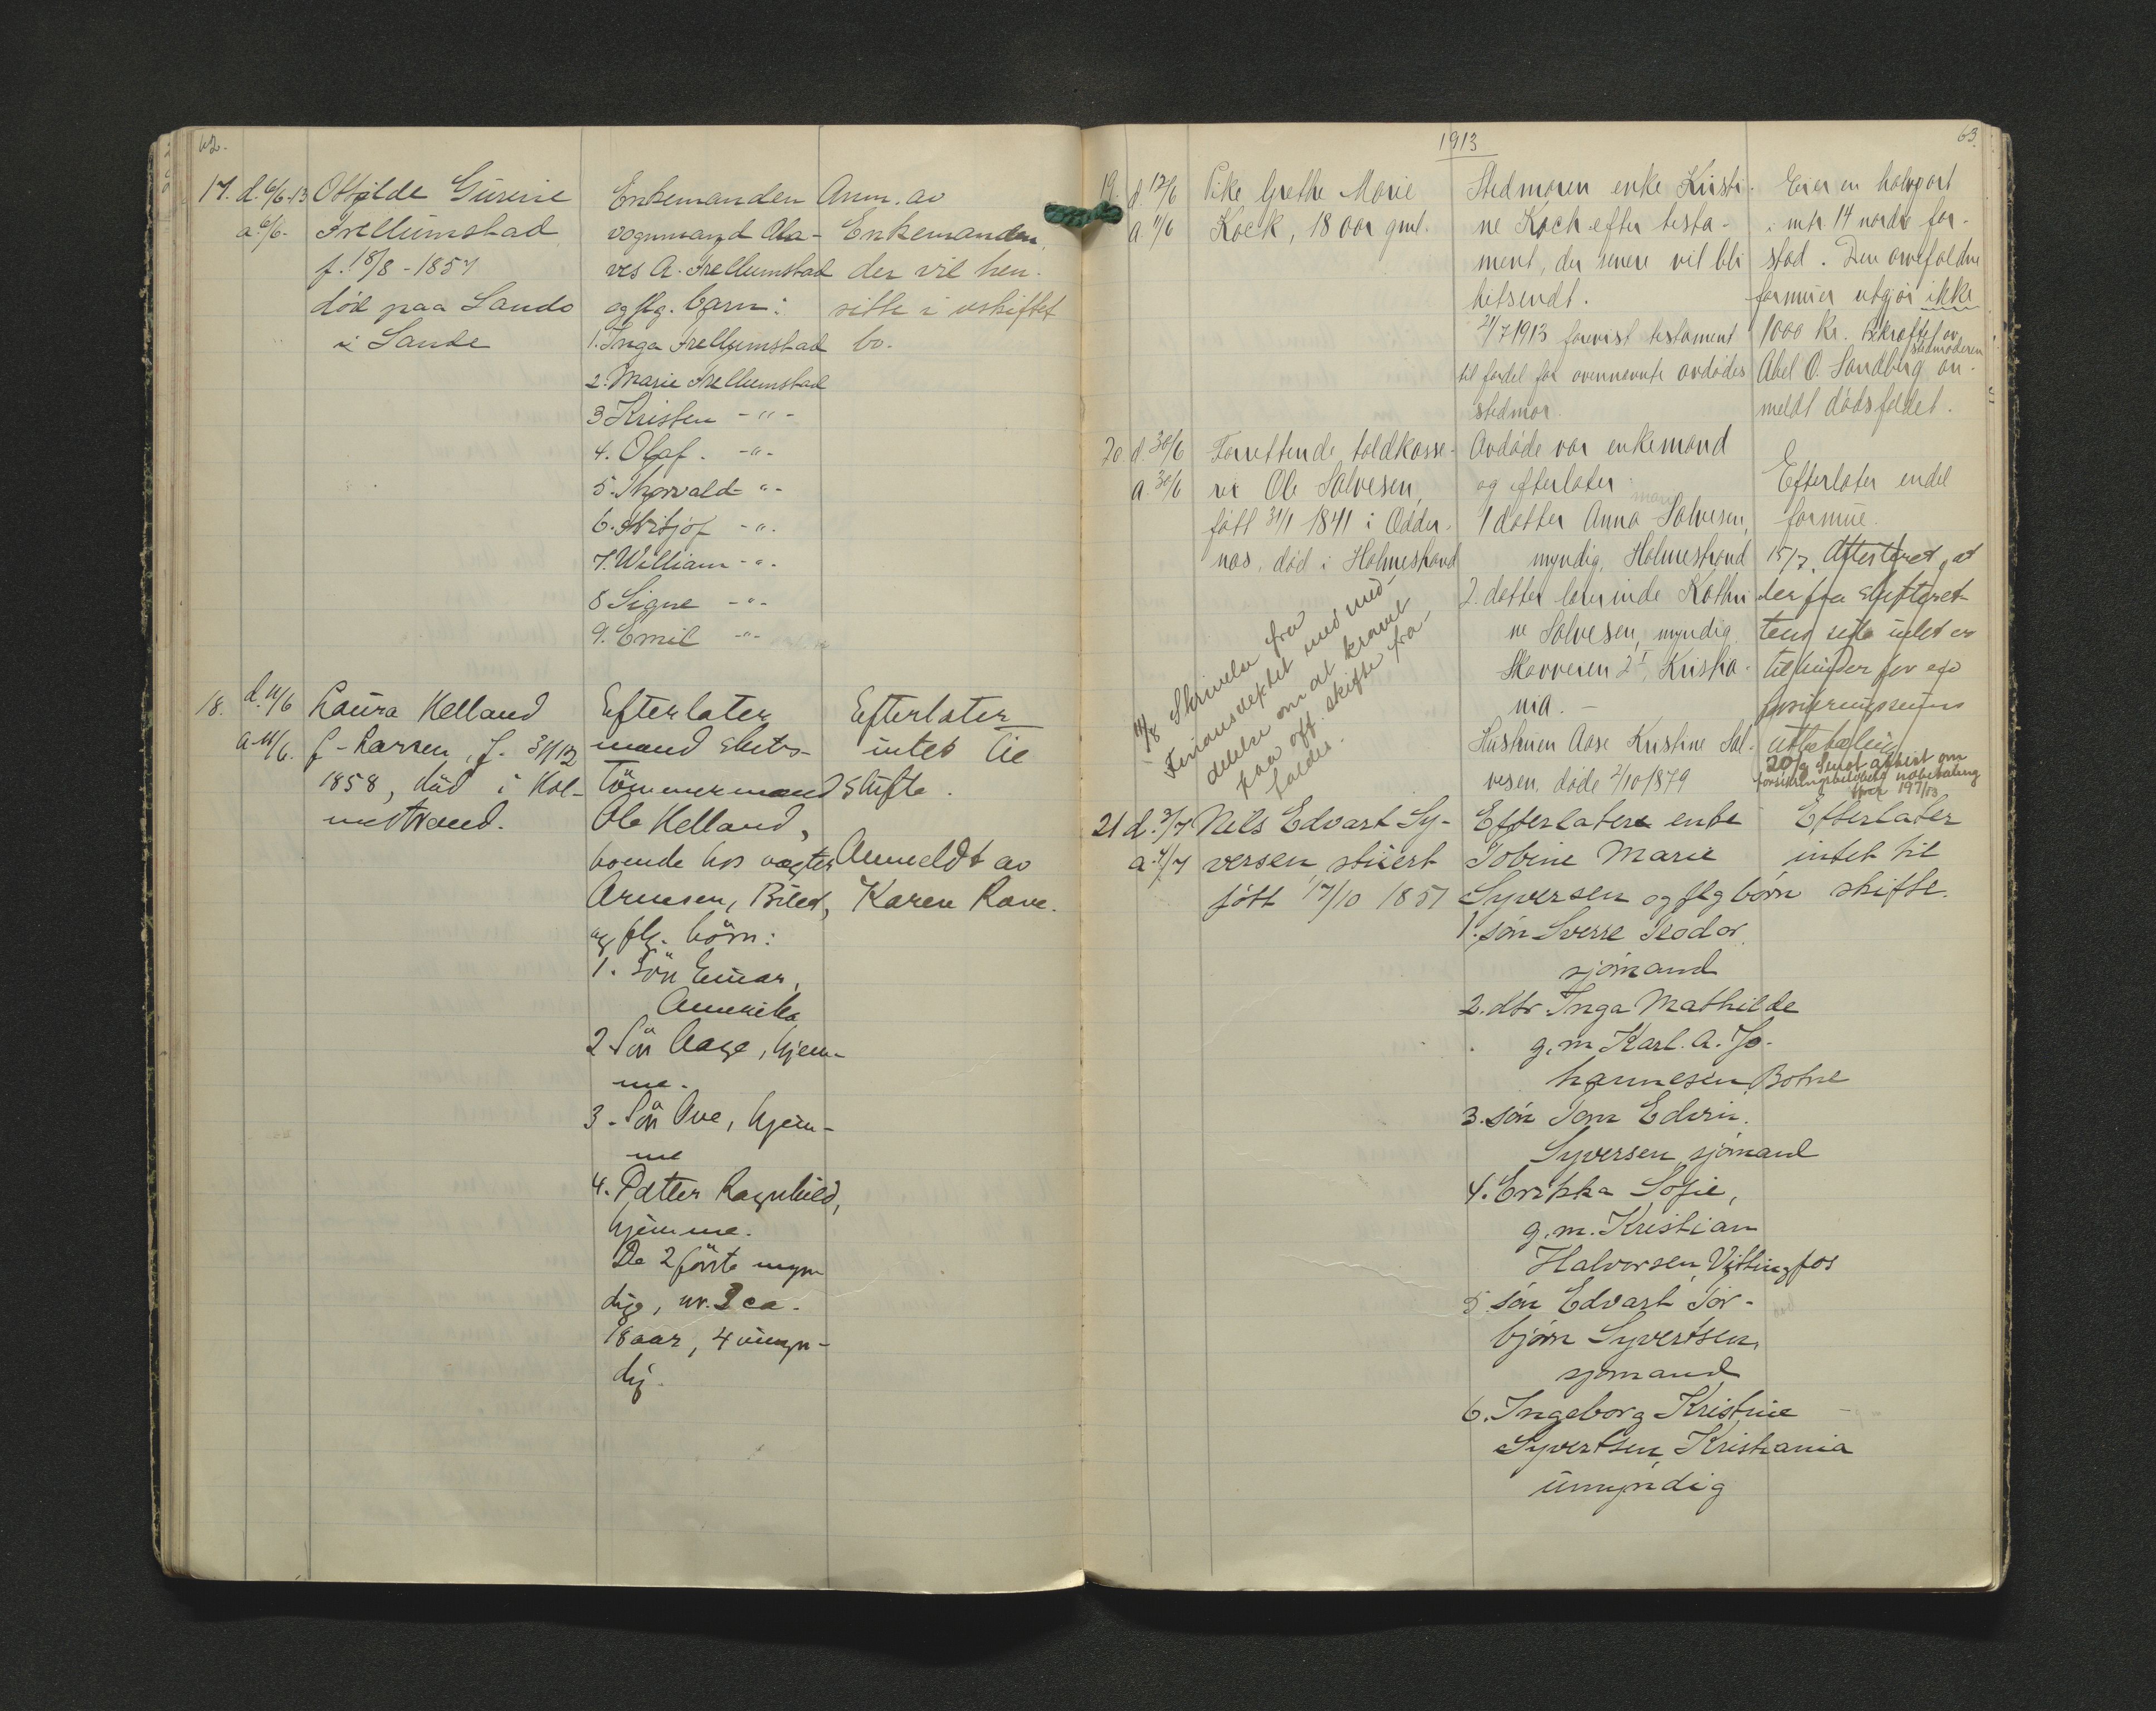 62.
17. d. 6/6-13 Othilde Gurine
a 6/6- Trellumstad
f. 18/8-1857
død paa Sando
i Sande
Enkemanden
vognmand Ola-
ves A. Trellumstad
og flg. barn:
1. Inga Trellumstad
2. Marie Trellumstad
3 Kristen -"-
4. Olaf. -"-
5. Thorvald -"-
6. Fritjof -"-
7. William -"-
8 Signe -"-
9. Emil -"-
Anm. av
Enkemanden,
der vil hen-
sitte i uskiftet
bo.
18. d. 11/6 Laura Helland
a 11/6. f. Larsen, f. 31/12
1858, död i Hol-
mestrand.
Efterlater
mand
Tömmermand
Ole Helland,
boende hos vagter
Arnesen,
og flg. börn:
1. Sön Einar,
Amerika
2. Sön Aage, hjem-
me.
3. Sön Ove, hjem-
me
4. Datter Ragnhild,
hjemme.
De 2 förste myn
dige, nr. 3 ca.
18 aar, 4 umyn-
dig.
Efterlater
intet til
skifte.
Anmeldt av
Karen Rove.
1913
63.
19. d. 12/6 Pike Grethe Marie
a. 17/6 Kock, 18 aar gml.
Stedmoren enke Kristi-
ne Koch efter testa-
ment, der senere vil bli
hitsendt.
21/7 1913 forevist testament
til fordel for ovennevnte avdødes
stedmor.
Eier en halvpart
i mtr. 14 nordre for-
stad. Den anefaldne
formue utgjør ikke
1000 Kr. Bekræftet av
stedmoderen
Abel O. Sandberg an-
meldt dødsfaldet.
20 d. 30/6 Forrettende toldkasse-
a. 30/6 rer Ole Salvesen,
født 31/1 1841 i Odder-
næs, død i Holmestrand
11/8 Skrivelse fra
Finansdeptet med med
delelse om at kravet
paa off. skifte fra-
faldes.
Avdøde var enkemand
og efterlater
1 datter Anna Salvesen,
myndig, Holmestrand
2. datter lærerinde Kathri
ne Salvesen, myndig,
Skovveien 2 I, Kristia-
nia. -
Hustruen Aase Kristine Sal-
vesen, døde 2/10 1879
Efterlater endel
formue.
15/7. Attestert, at
der fra skifteret-
tens side intet er
til hinder for
utbetaling
20/9 Sendt attest om
197/13
21 d. 2/7 Nels Edvart Sy-
a. 4/7 versen, stuert
født 17/10 1857
Efterlater enke
Tobine Marie
Syversen og flg børn
1. søn Sverre Teodor
sjømand
2. dtr Inga Mathilde
g. m Karl. A. Jo-
hannesen Botne
3. søn Tom Edvin
Syversen, sjømand
4. Erikka Sofie,
g. m. Kristian
Halvorsen, Vittingfos
5. søn Edvart Tor-
bjørn Syvertsen,
sjømand
6. Ingeborg Kristine
Syvertsen, Kristiania
umyndig
Efterlater
intet til
skifte.